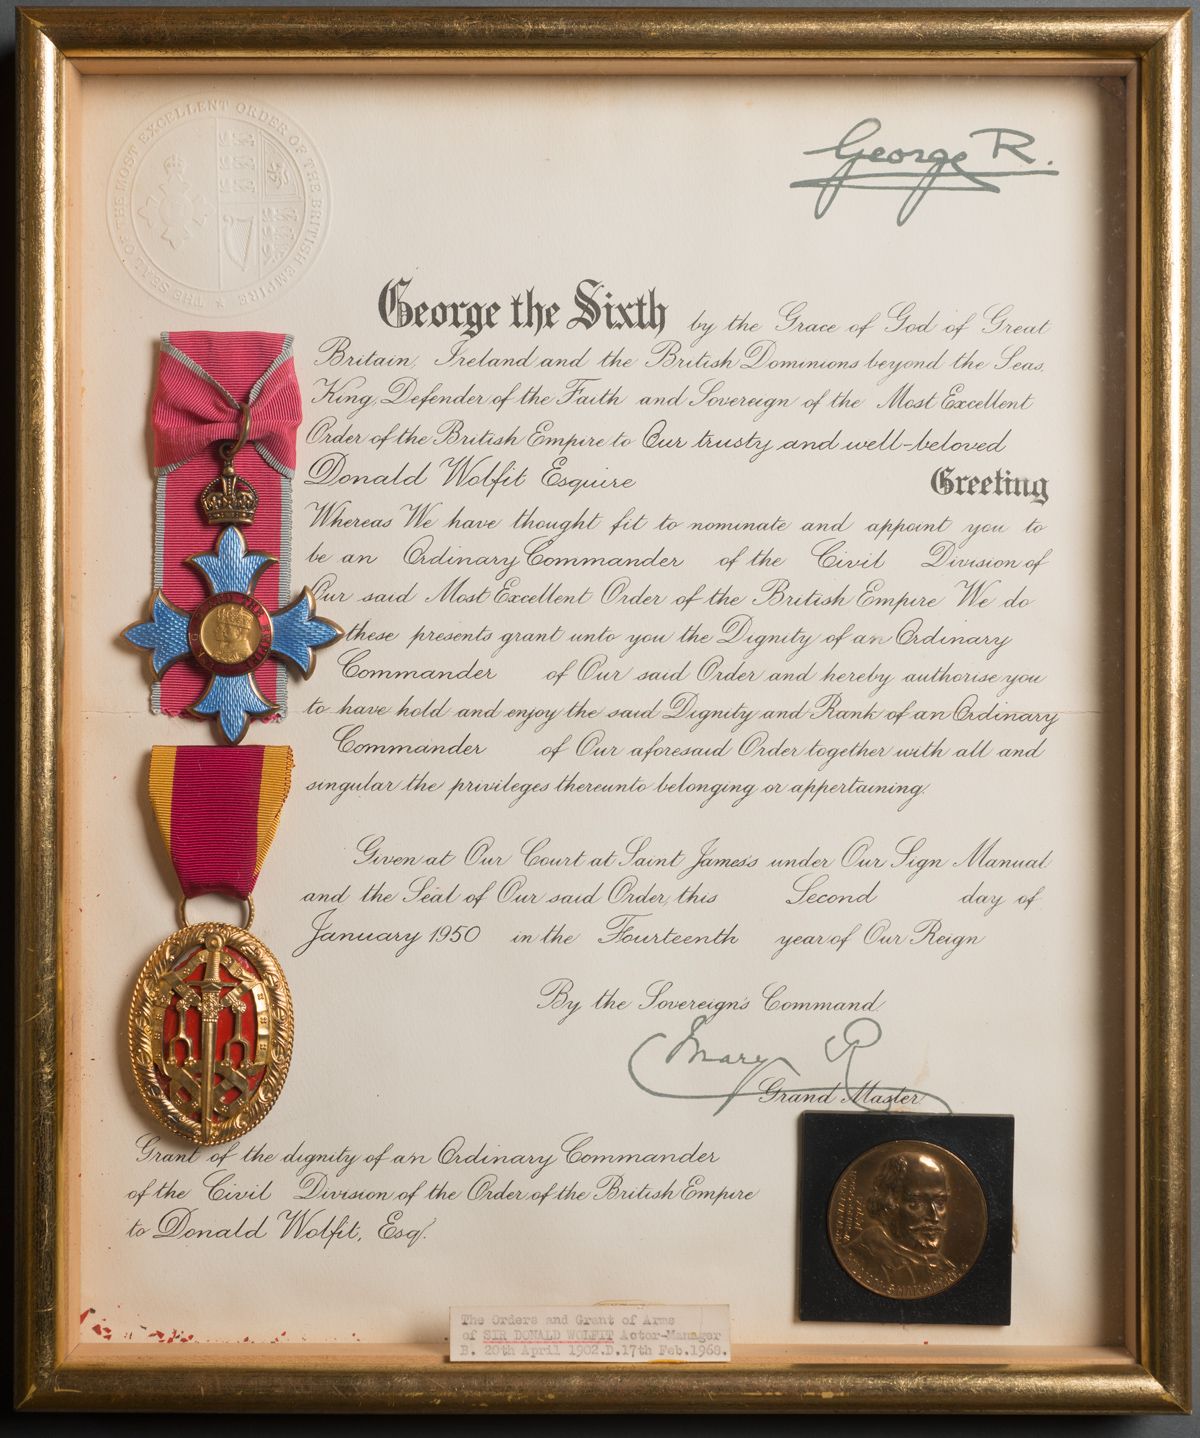 THE SEAL OF THE MOST EXCELLENT ORDER OF THE BRITISH EMPIRE
George R.
George the Sixth by the Grace of God of Great
Britain, Ireland and the British Dominions beyond the Seas,
King, Defender of the Faith and Sovereign of the Most Excellent
Order of the British Empire to Our trusty and well-beloved
Donald Wolfit Esquire Greeting
Whereas We have thought fit to nominate and appoint you to
be an Ordinary Commander of the Civil Division of
Our said Most Excellent Order of the British Empire We do
these presents grant unto you the Dignity of an Ordinary
Commander of Our said Order and hereby authorise you
to have hold and enjoy the said Dignity and Rank of an Ordinary
Commander of Our aforesaid Order together with all and
singular the privileges thereunto belonging or appertaining.
Given at Our Court at Saint James's under Our Sign Manual
and the Seal of Our said Order, this Second day of
January 1950 in the Fourteenth year of Our Reign
By the Sovereign's Command.
Mary R
Grand Master.
Grant of the dignity of an Ordinary Commander
of the Civil Division of the Order of the British Empire
to Donald Wolfit, Esq.
The Orders and Grant of Arms
of SIR DONALD WOLFIT Actor-Manager
B. 20th April 1902.D.17th Feb.1968.